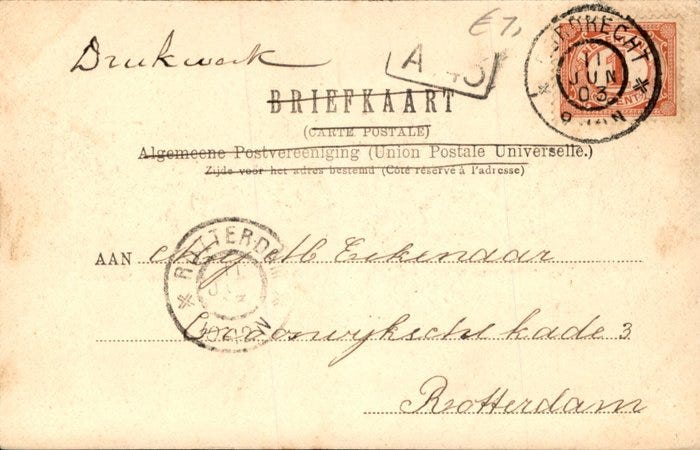 Drukwerk
€7,
DORDRECHT
11
JUN
03
BRIEFKAART
(CARTE POSTALE)
Algemeene Postvereeniging (Union Postale Universelle.)
Zijde voor het adres bestemd (Côté réservé à l'adresse)
ROTTERDAM
AAN M Eikenaar
kade 3
Rotterdam